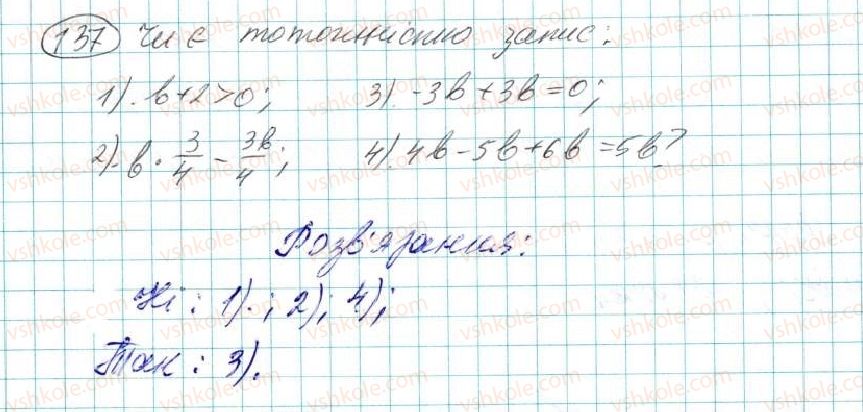 137 Чи є тотожністю запис:
1). b+2>0; 3). -3b+3b=0;
2). b · 3/4 - 3b/4; 4). 4b-5b+6b=5b?
Розв'язання:
Ні: 1).; 2); 4);
Так: 3).